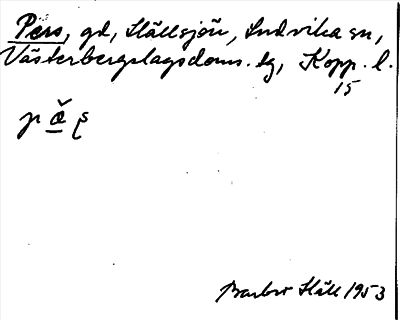 Pers, gd, Hällsjön, Ludvika sn,
Västerbergslags doms. tg, Kopp. l.
15
p æ̌ ʂ
Barbro Häll 1953